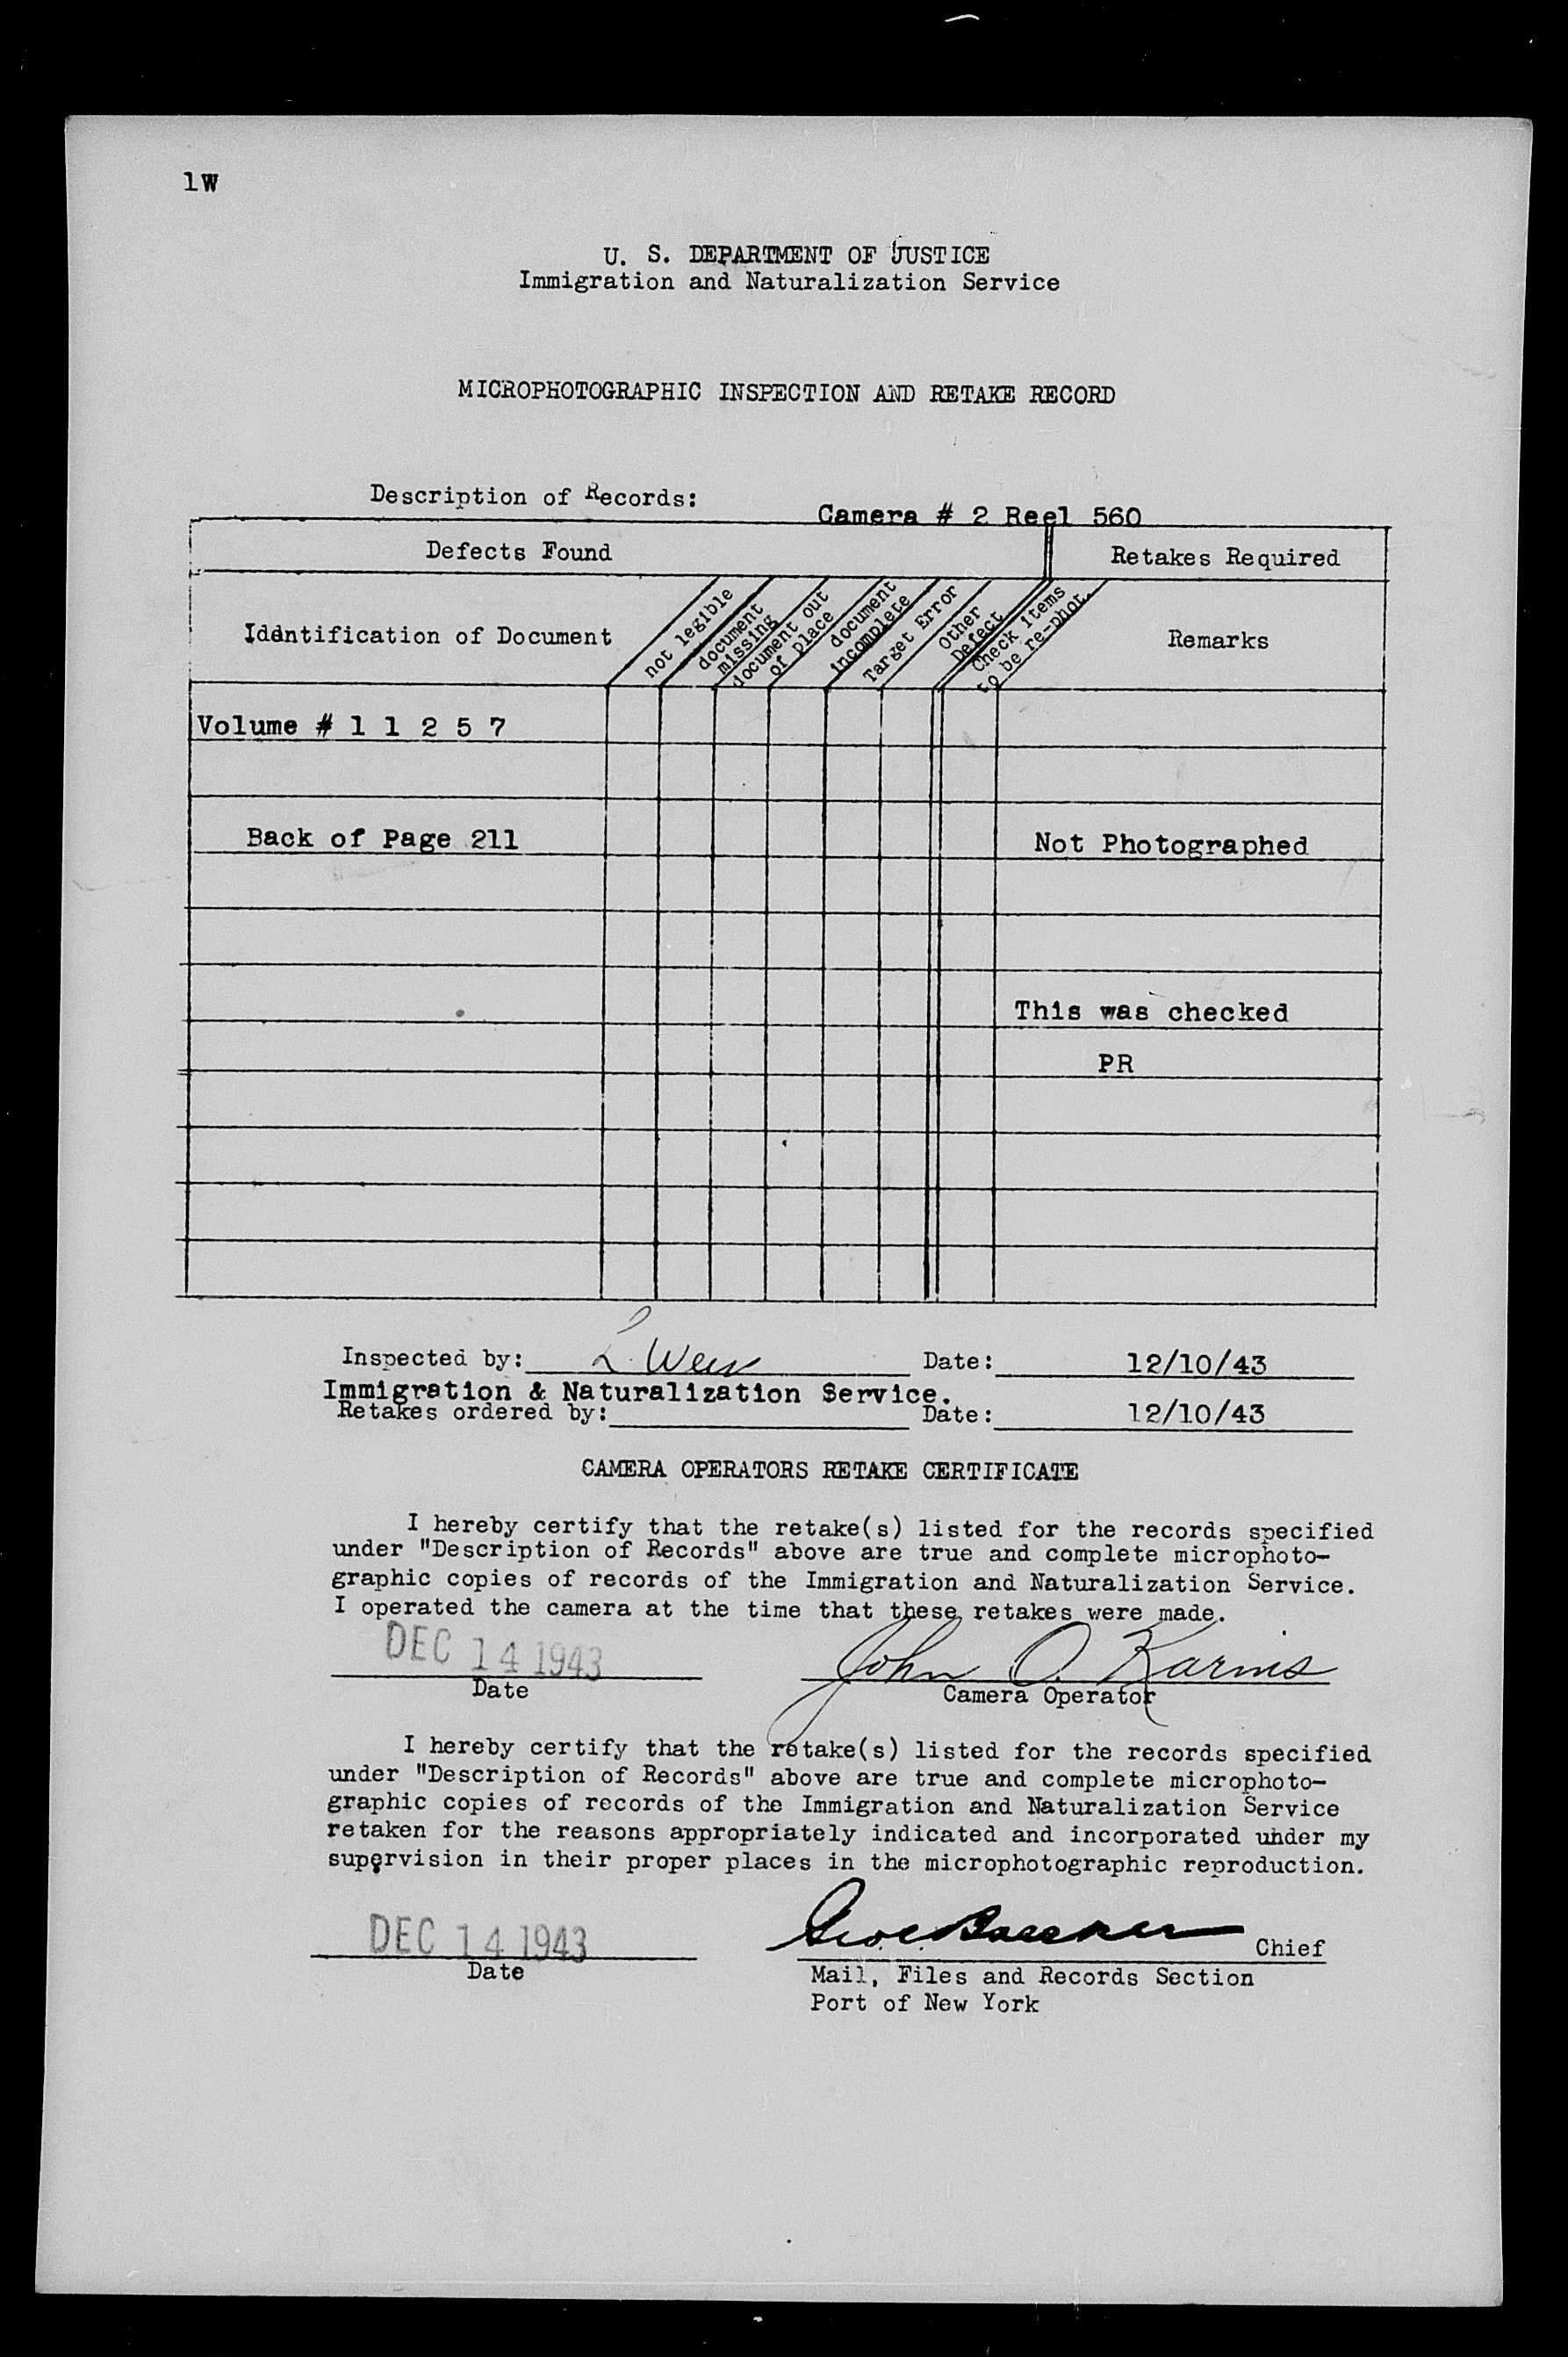 1W
U. S. DEPARTMENT OF JUSTICE
Immigration and Naturalization Service
MICROPHOTOGRAPHIC INSPECTION AND RETAKE RECORD
Description of Records:
Camera # 2 Reel 560
Defects Found
Retakes Required
Idantification of Document
not legible
document missing
document out of place
document incomplete
Target Error
Other Defect
Check items to be re-phot.
Remarks
Volume # 1 1 2 5 7
Back of Page 211
Not Photographed
This was checked
PR
Inspected by: L. Date: 12/10/43
Immigration & Naturalization Service.
Retakes ordered by: Date: 12/10/43
CAMERA OPERATORS RETAKE CERTIFICATE
I hereby certify that the retake(s) listed for the records specified
under "Description of Records" above are true and complete microphoto-
graphic copies of records of the Immigration and Naturalization Service.
I operated the camera at the time that these retakes were made.
DEC 14 1943
John O. Karins
Date
Camera Operator
I hereby certify that the retake(s) listed for the records specified
under "Description of Records" above are true and complete microphoto-
graphic copies of records of the Immigration and Naturalization Service
retaken for the reasons appropriately indicated and incorporated under my
supervision in their proper places in the microphotographic reproduction.
DEC 14 1943
Chief
Date
Mail, Files and Records Section
Port of New York